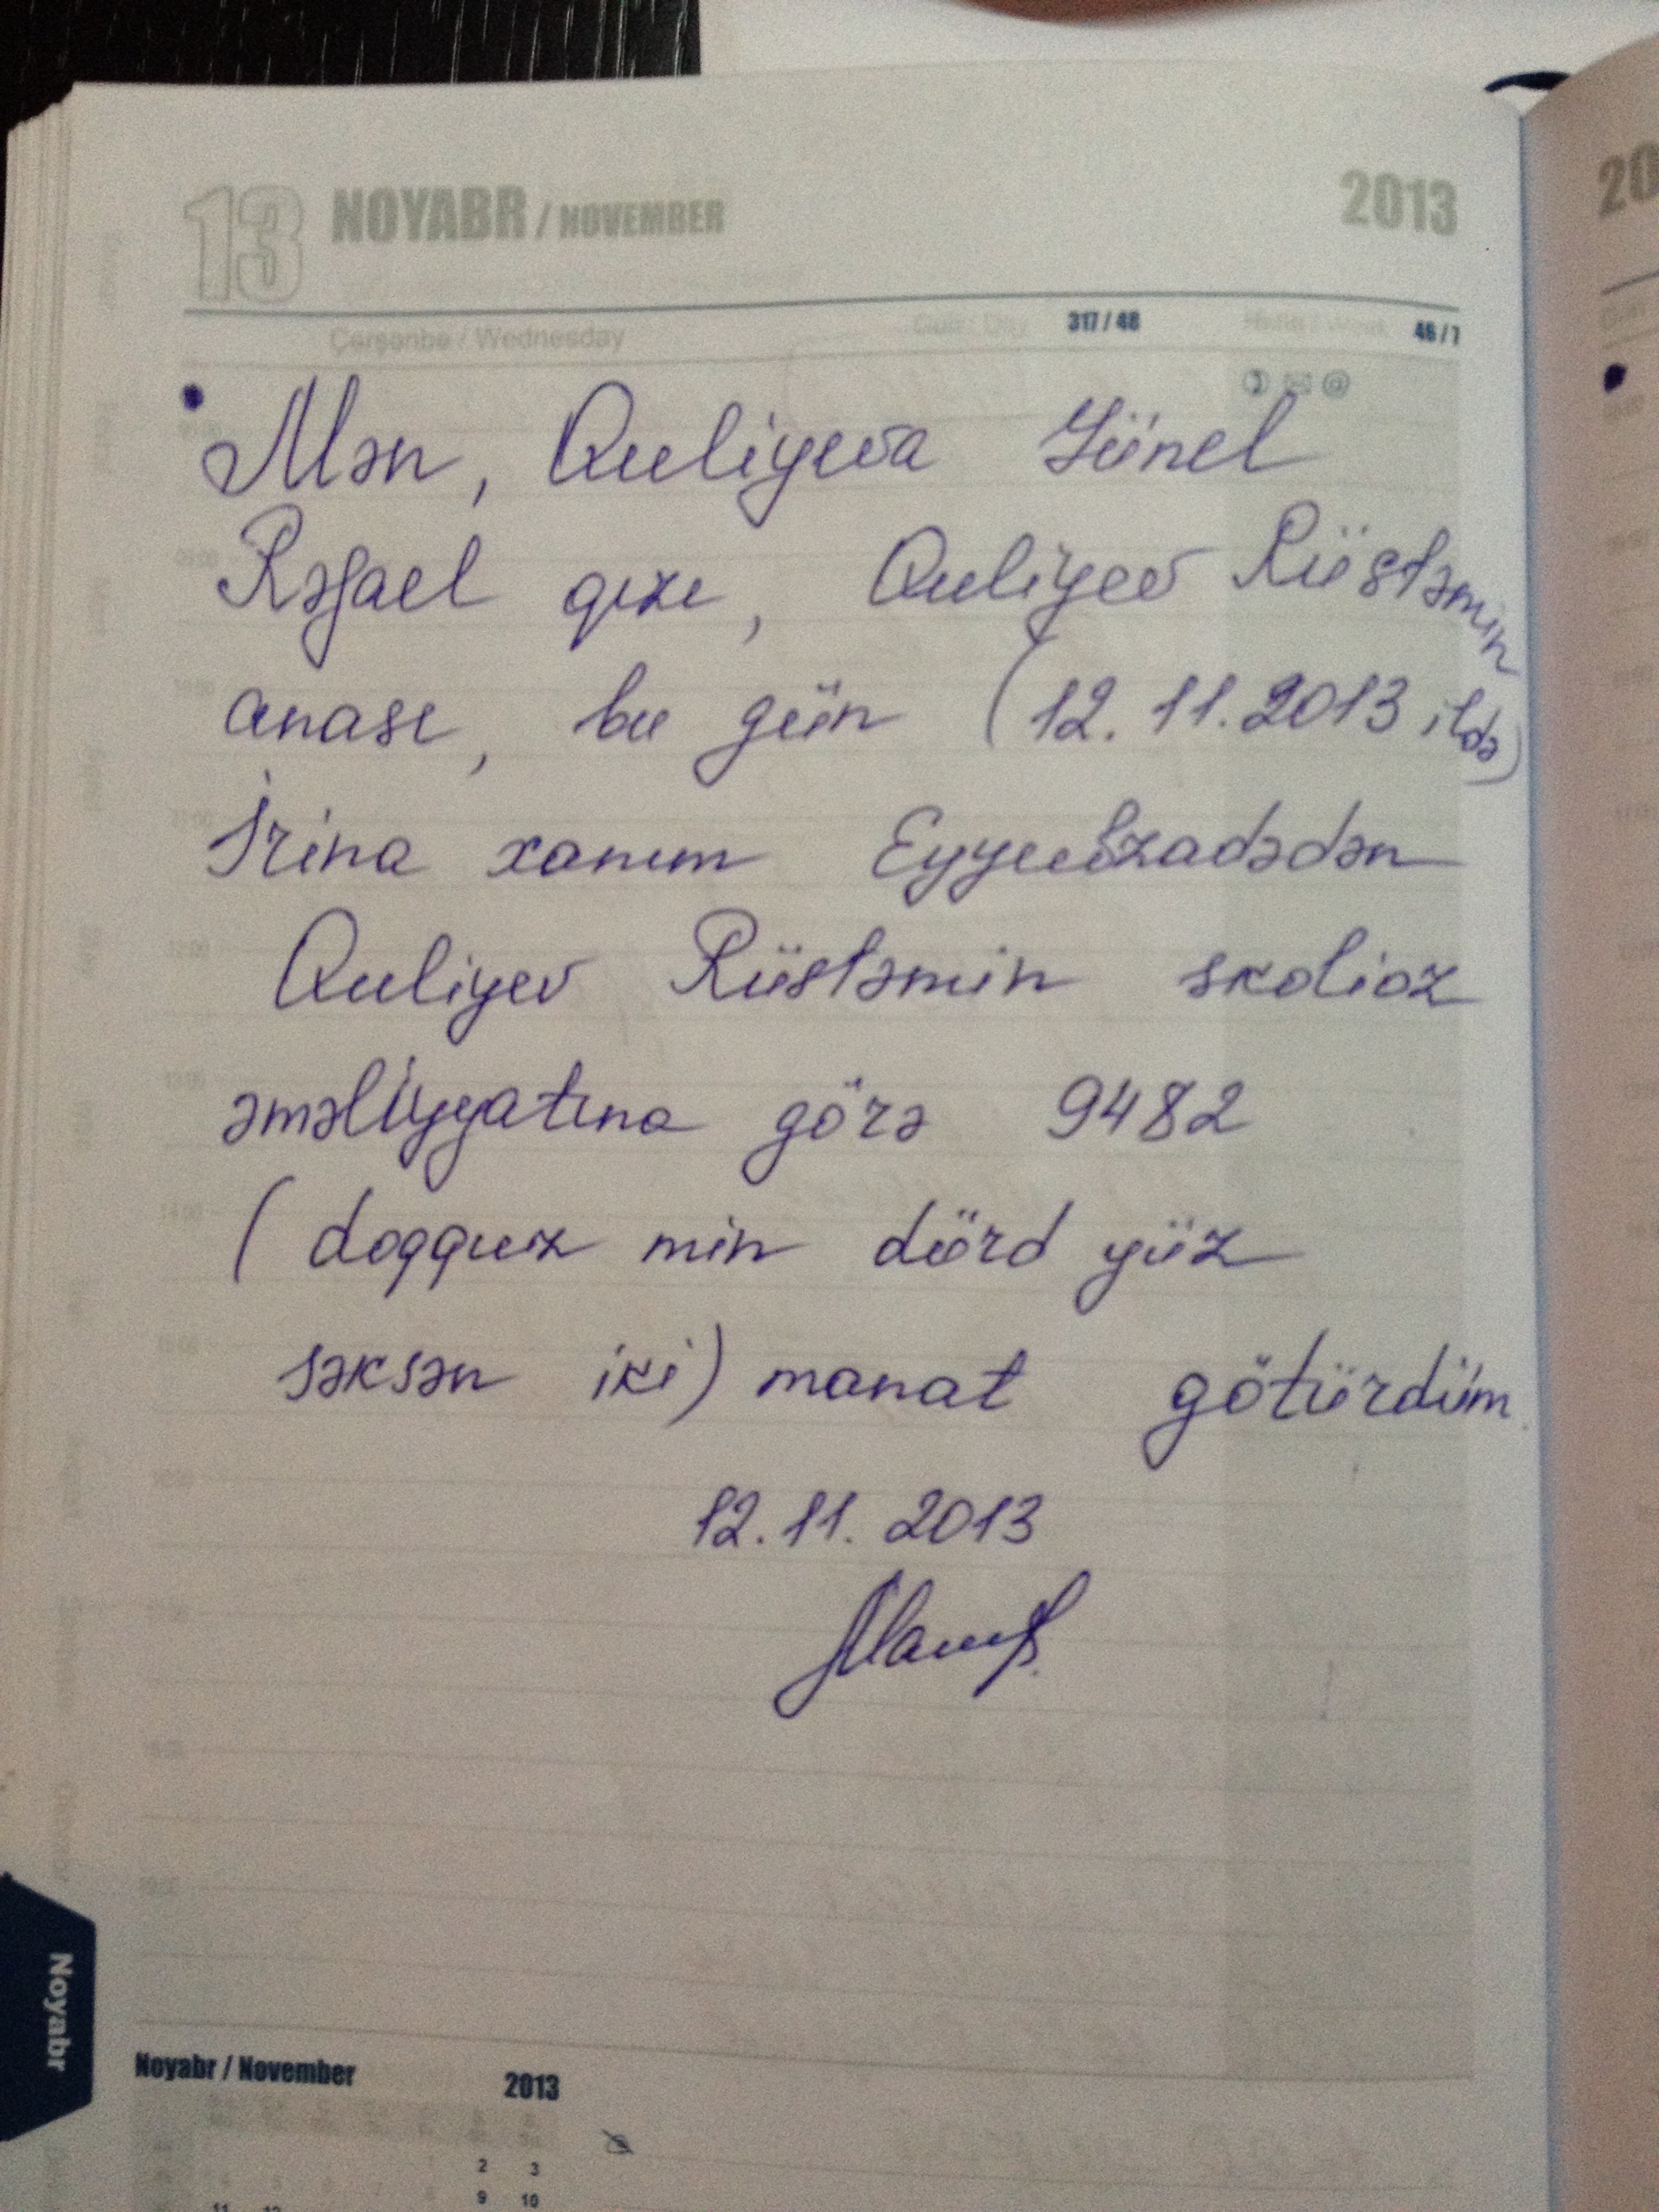 13 NOYABR / NOVEMBER 2013
Çərşənbə / Wednesday Gün / Day 317 / 48 Həftə / Week 46 / 7
Mən, Quliyeva Günel
Rəfael qızı, Quliyev Rüstəmin
anası, bu gün (12.11.2013 ildə)
İrina xanım Eyyubzadədən
Quliyev Rüstəmin skolioz
əməliyyatına görə 9482
(doqquz min dörd yüz
səksən iki) manat götürdüm.
12.11.2013
Noyabr
Noyabr / November 2013
2 3
9 10
11 12
20